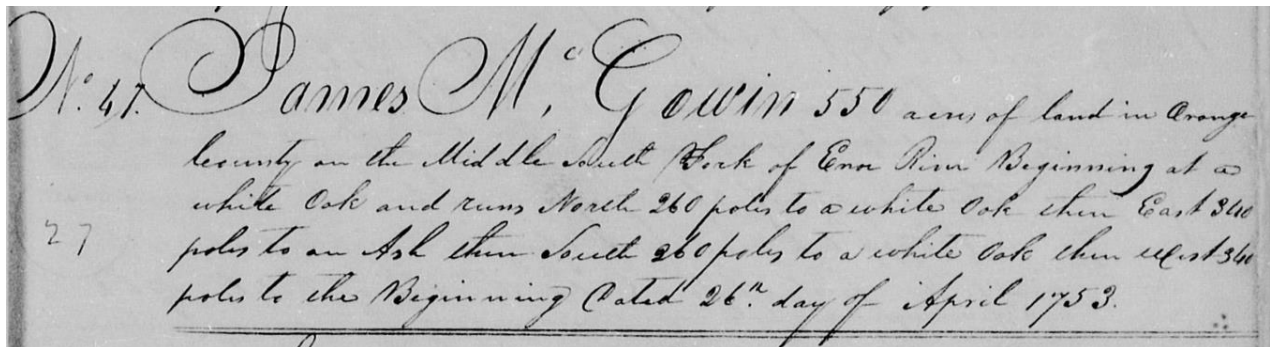 No. 47. James Mc. Gowin 550 acres of land in Orange
County on the Middle South Fork of Enoe River Beginning at a
white Oak and runs North 260 poles to a white Oak then East 340
27
poles to an Ash then South 260 poles to a white Oak then West 340
poles to the Beginning Dated 26th day of April 1753.